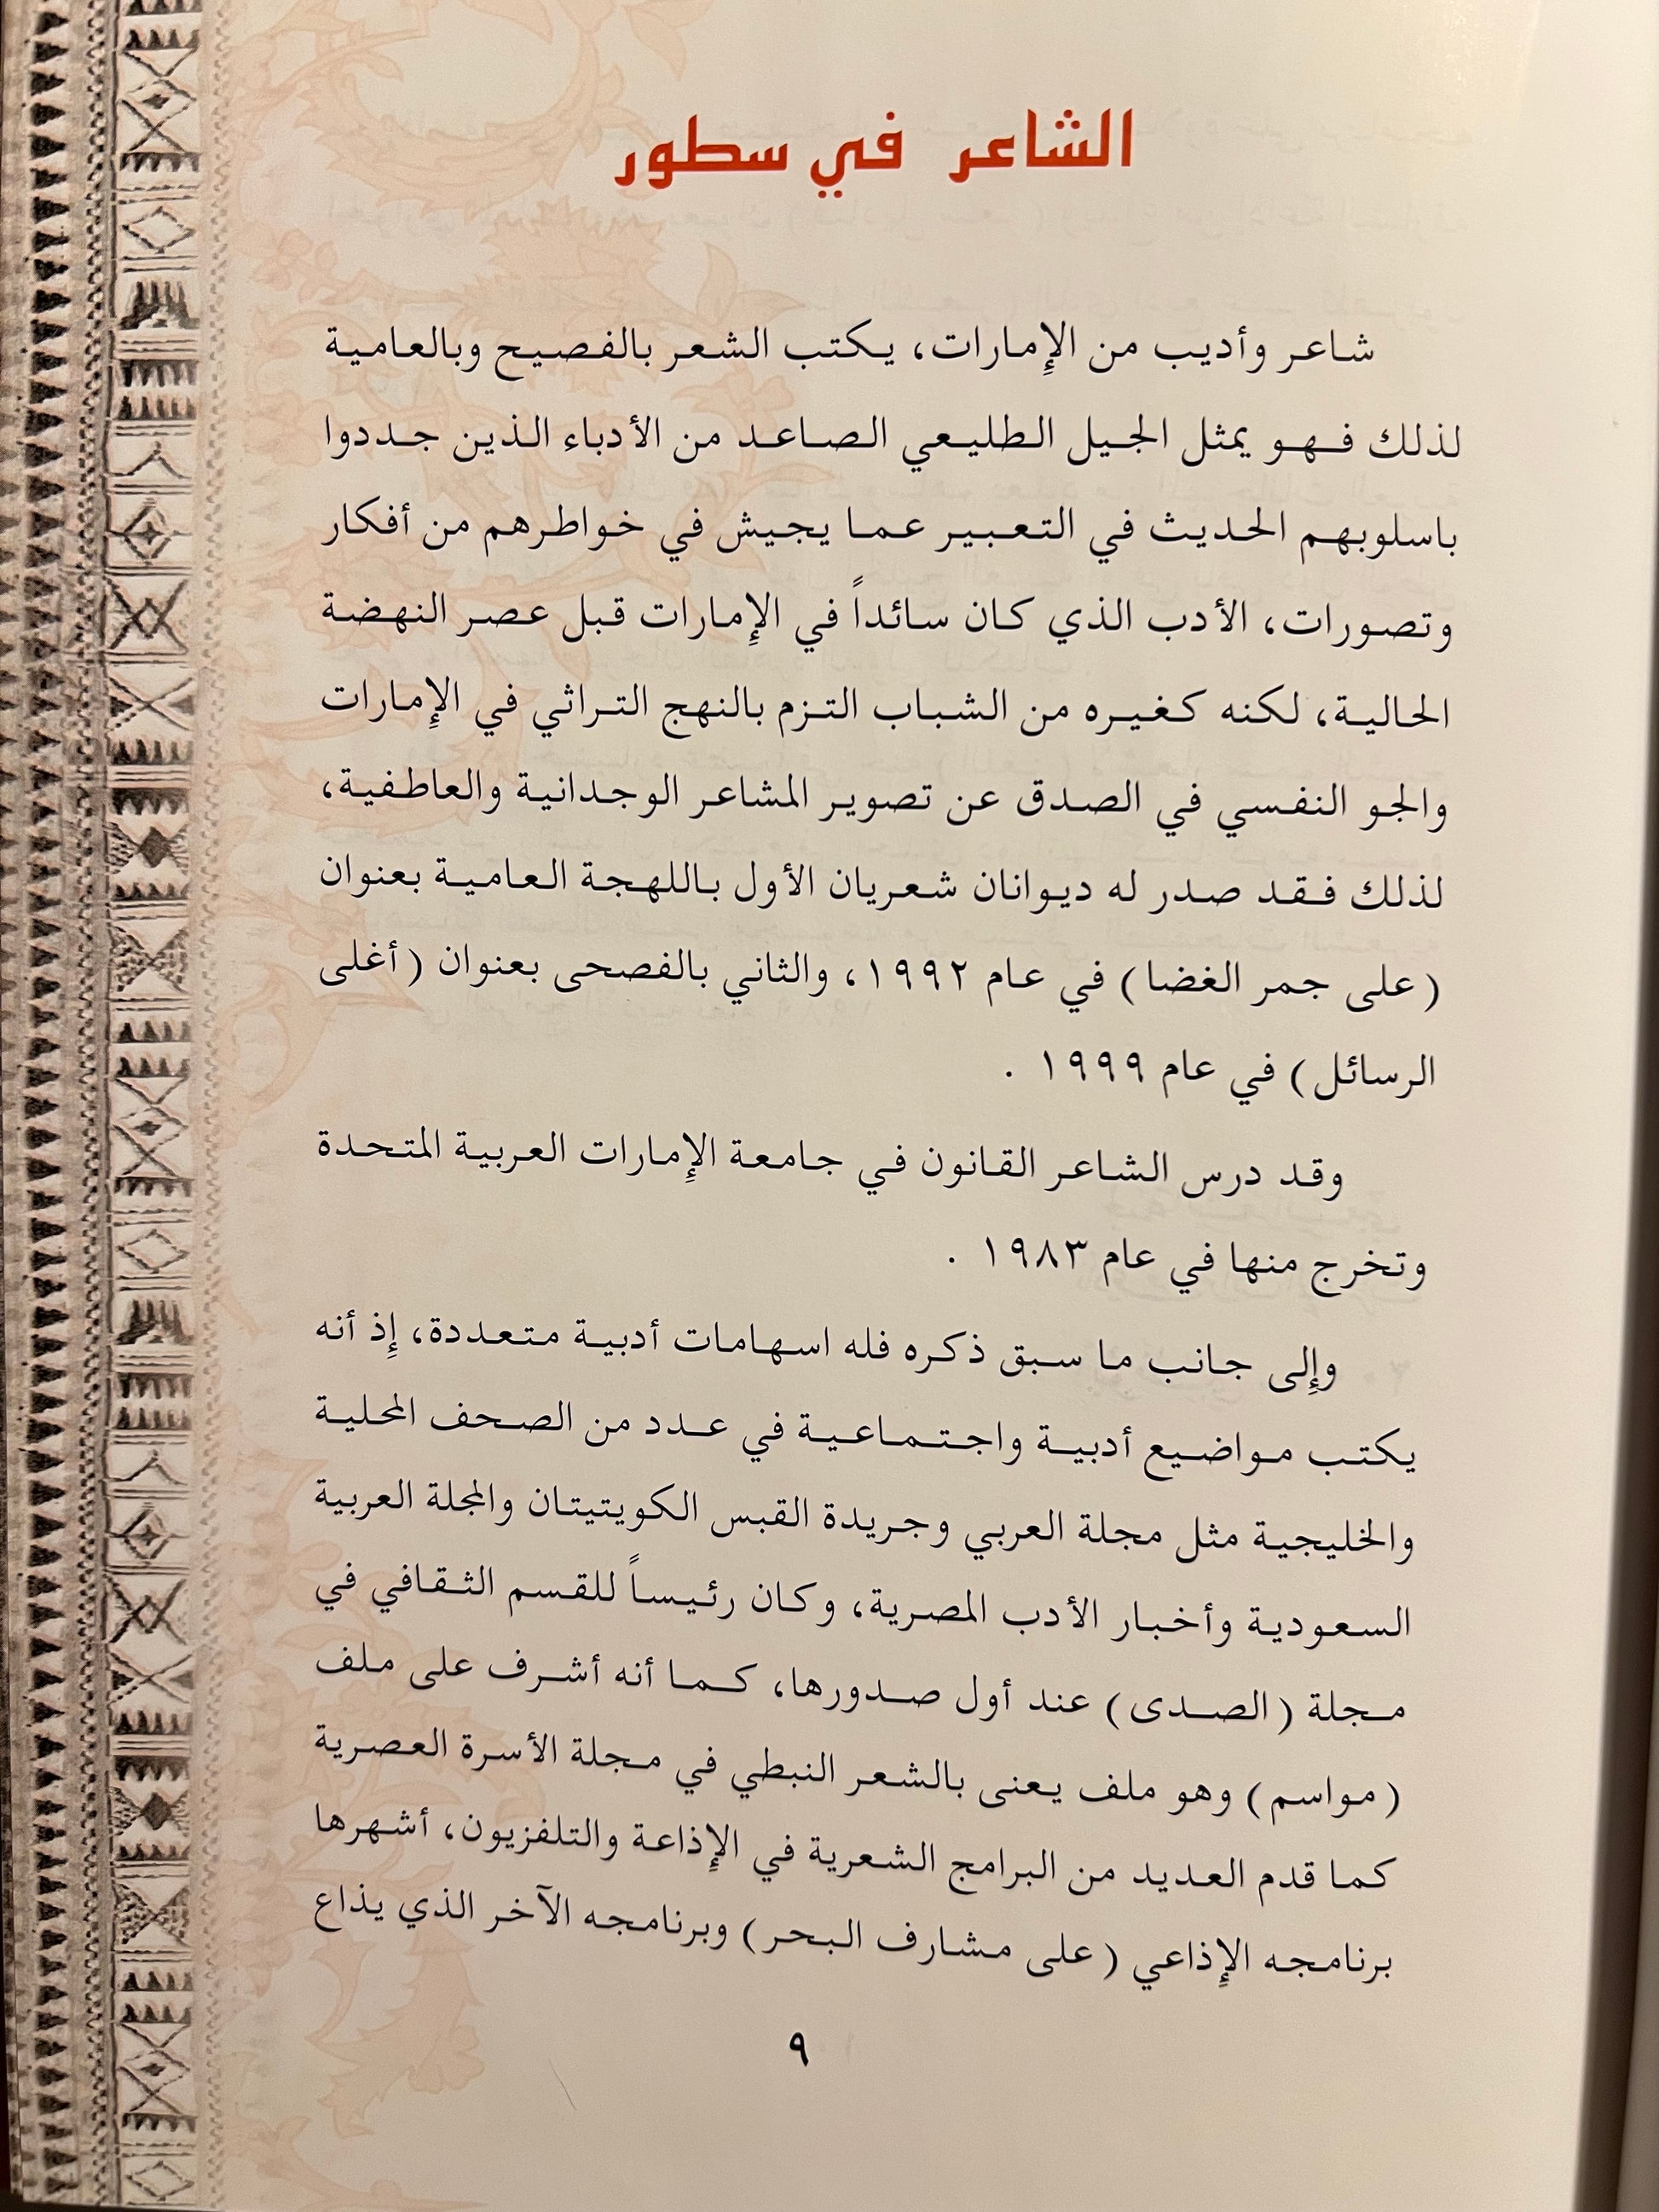 الشاعر في سطور
شاعر وأديب من الإمارات، يكتب الشعر بالفصيح وبالعامية
لذلك فهو يمثل الجيل الطليعي الصاعد من الأدباء الذين جددوا
باسلوبهم الحديث في التعبير عما يجيش في خواطرهم من أفكار
وتصورات، الأدب الذي كان سائداً في الإمارات قبل عصر النهضة
الحالية، لكنه كغيره من الشباب التزم بالنهج التراثي في الإمارات
والجو النفسي في الصدق عن تصوير المشاعر الوجدانية والعاطفية،
لذلك فقد صدر له ديوانان شعريان الأول باللهجة العامية بعنوان
(على جمر الغضا) في عام ١٩٩٢، والثاني بالفصحى بعنوان (أغلى
الرسائل) في عام ١٩٩٩ .
وقد درس الشاعر القانون في جامعة الإمارات العربية المتحدة
وتخرج منها في عام ١٩٨٣ .
وإلى جانب ما سبق ذكره فله اسهامات أدبية متعددة، إذ أنه
يكتب مواضيع أدبية واجتماعية في عدد من الصحف المحلية
والخليجية مثل مجلة العربي وجريدة القبس الكويتيتان والمجلة العربية
السعودية وأخبار الأدب المصرية، وكان رئيساً للقسم الثقافي في
مجلة (الصدى) عند أول صدورها، كما أنه أشرف على ملف
(مواسم) وهو ملف يعنى بالشعر النبطي في مجلة الأسرة العصرية
كما قدم العديد من البرامج الشعرية في الإذاعة والتلفزيون، أشهرها
برنامجه الإذاعي (على مشارف البحر) وبرنامجه الآخر الذي يذاع
٩